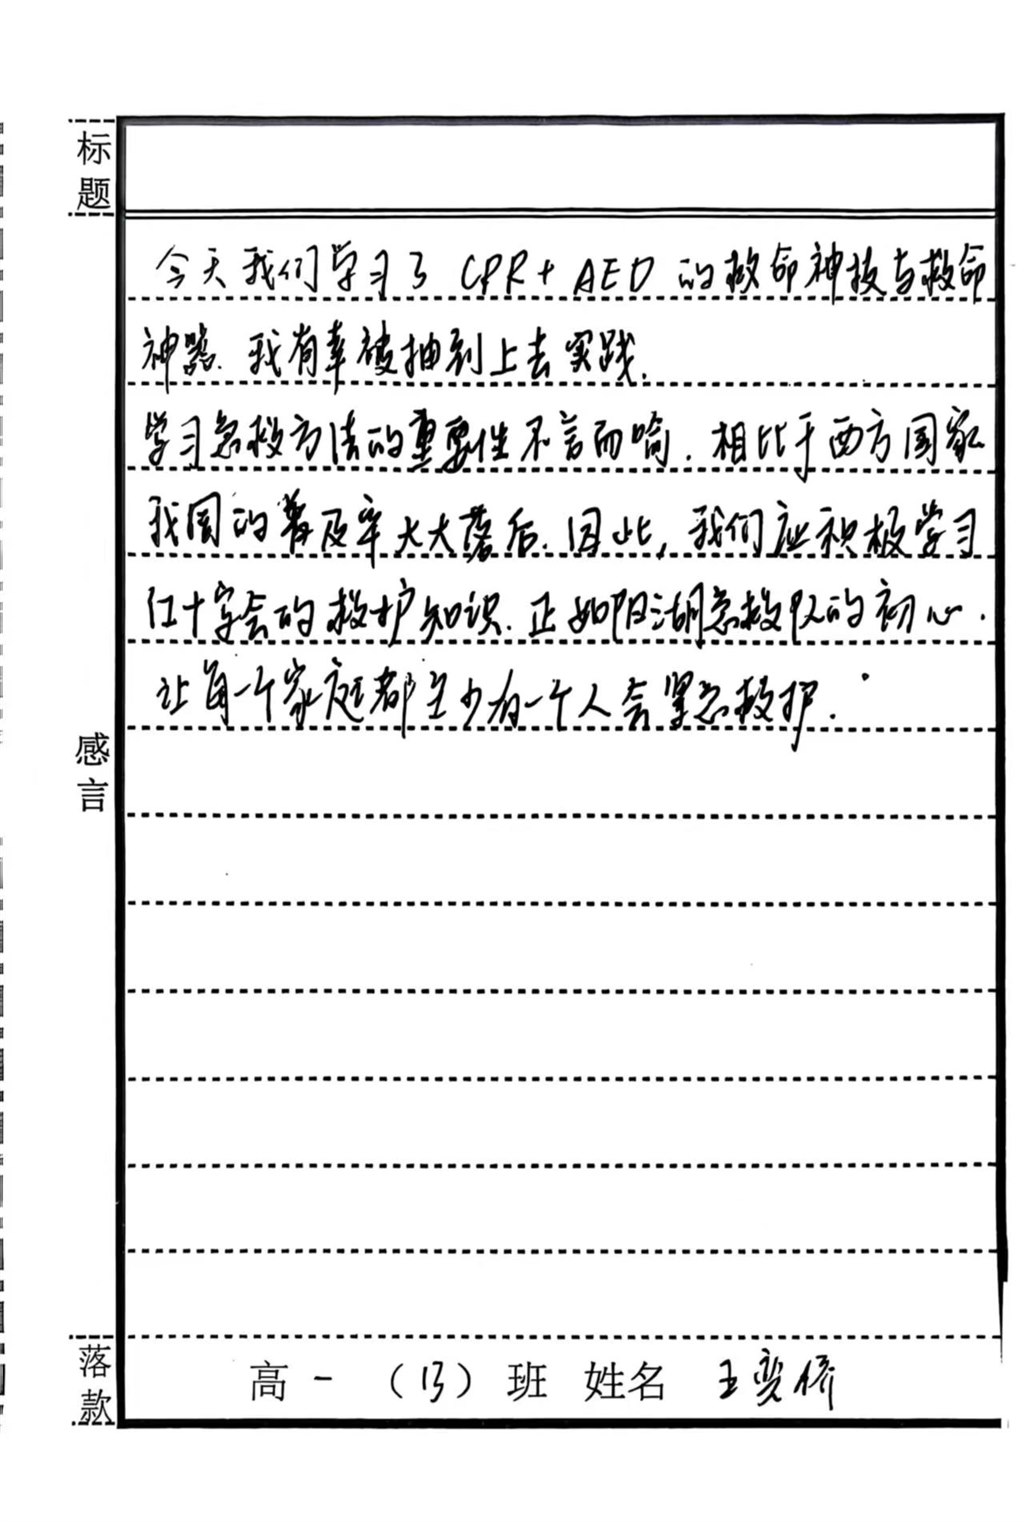 标题
今天我们学习了 CPR+AED 的救命神技与救命
神器. 我有幸被抽到上去实践.
学习急救方法的重要性不言而喻. 相比于西方国家
我国的普及率大大落后. 因此, 我们应积极学习
红十字会的救护知识. 正如阳湖急救队的初心.
让每一个家庭都至少有一个人会紧急救护.
感言
落款
高一 (13) 班 姓名 王奕侨